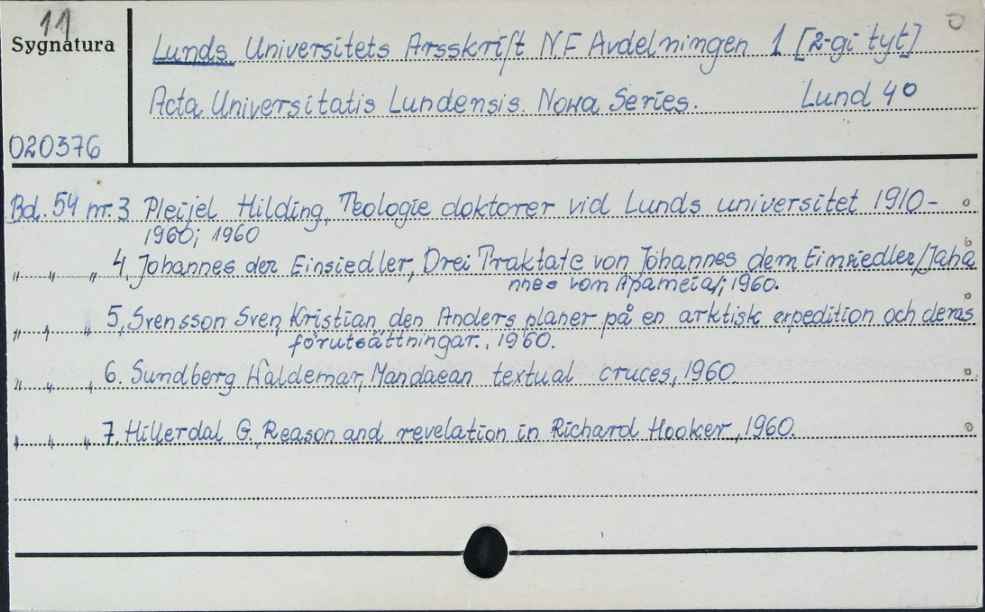 11
Sygnatura
Lunds Universitets Arsskrift N.F Avdelningen 1 [2-gi tyt]
Acta Universitatis Lundensis. Nowa Series. Lund 40
020376
Bd. 54 nr. 3 Pleijel Hilding, Teologie doktorer vid Lunds universitet 1910-
1960; 1960
" " " 4, Johannes der Einsiedler, Drei Traktate von Johannes dem Einsiedler/Joha
nnes vom Apameia/; 1960.
" " " 5, Svensson Sven, Kristian den Anders planer på en arktisk expedition och deras
förutsättningar., 1960.
" " " 6. Sundberg Waldemar, Mandaean textual cruces, 1960.
" " " 7. Hillerdal G., Reason and revelation in Richard Hooker, 1960.